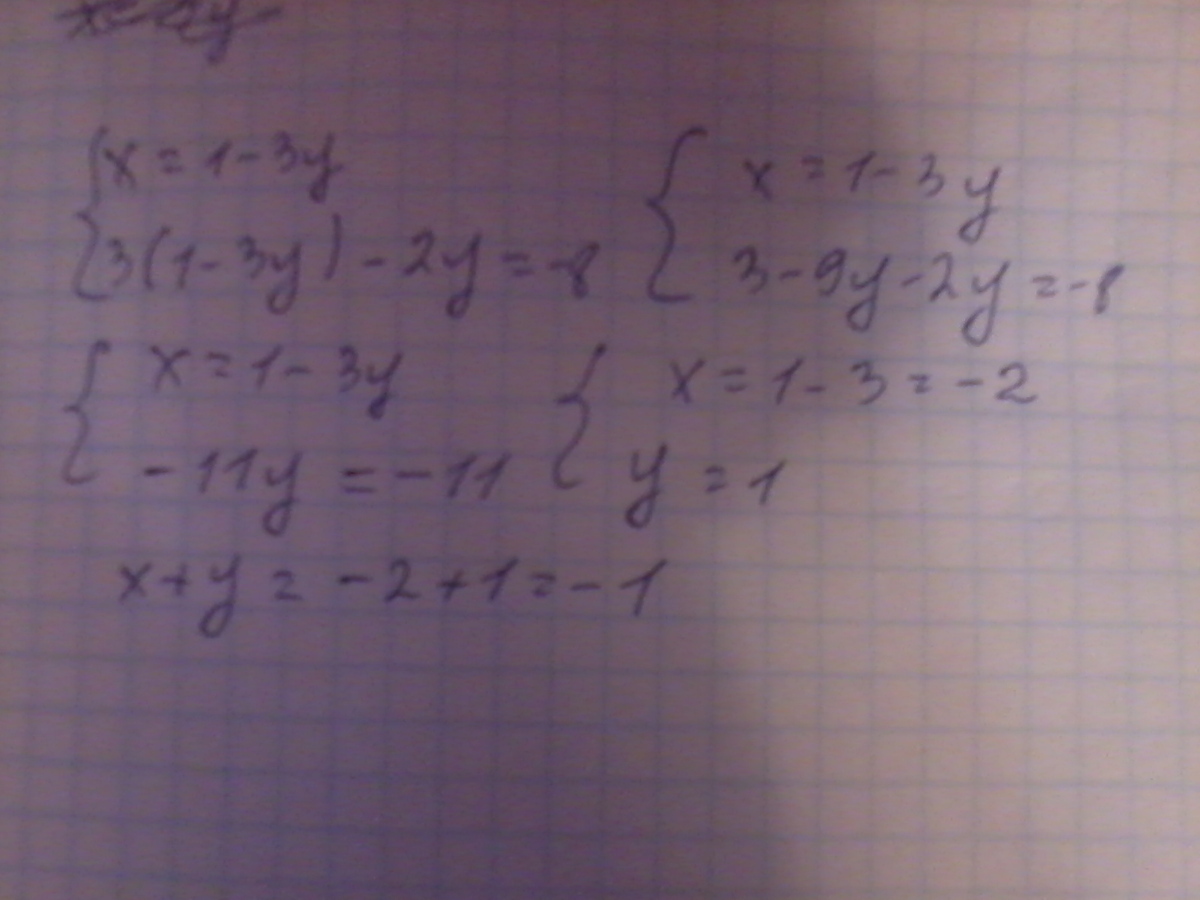 x = 1 - 3y
3(1 - 3y) - 2y = -8
x = 1 - 3y
3 - 9y - 2y = -8
x = 1 - 3y
-11y = -11
x = 1 - 3 = -2
y = 1
x + y = -2 + 1 = -1